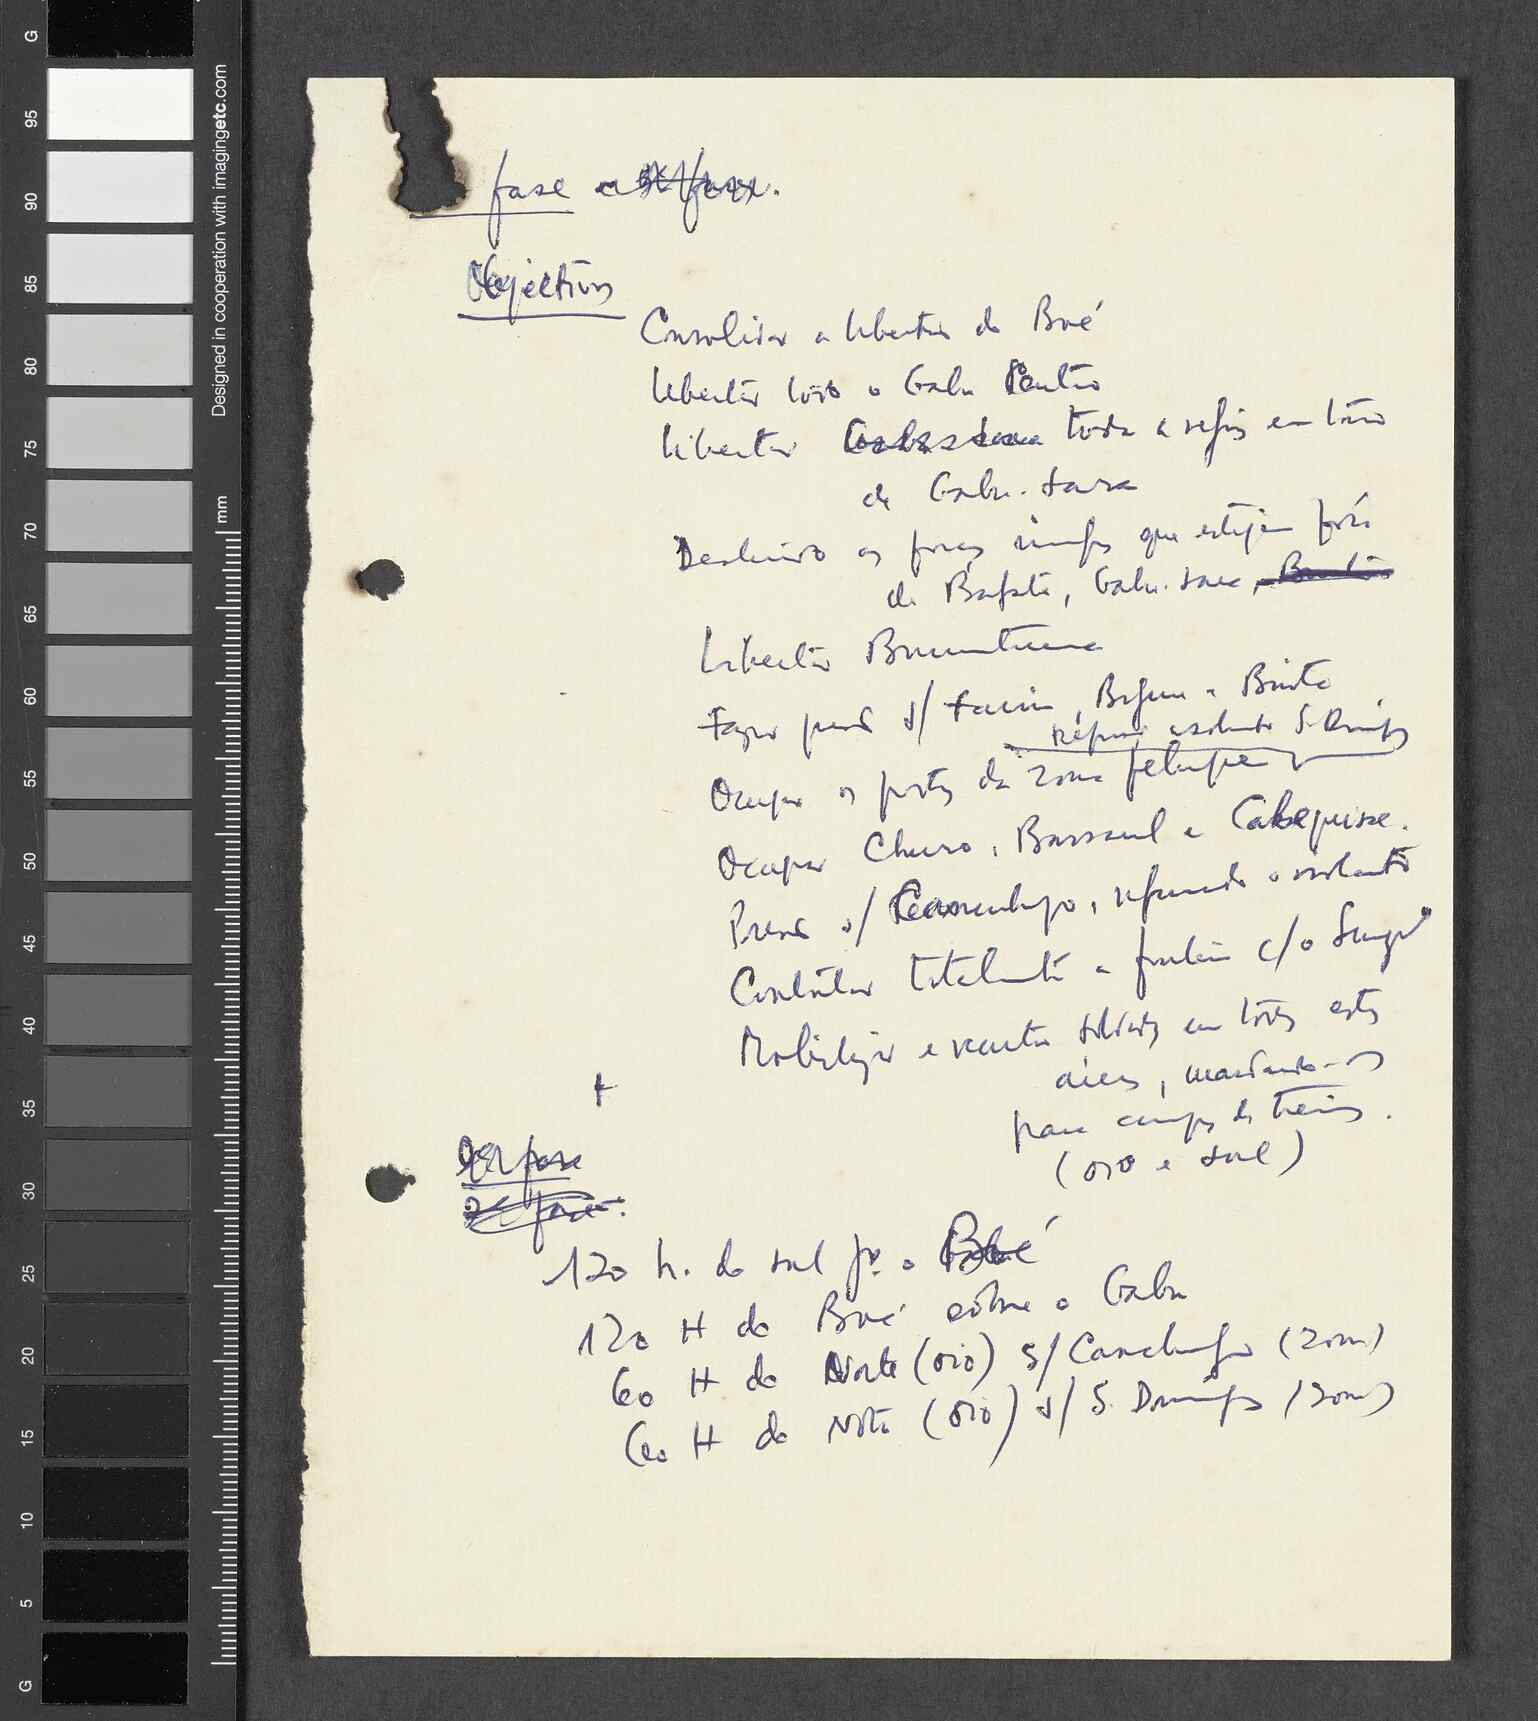 fase a
Objectivos
Consolidar a libertação do Boé
Libertar todo o Gabu
Libertar toda a região em tôrno
de Gabu-Sara
Destruindo as forças inimigas que estejam fora
de Bafatá, Gabu-Sara,
Libertar Buruntuma
Fazer pressão s/ Farim, Bigene e Binta
S. Domingos
Ocupar os postos da zona felupe
Ocupar Churo, Bassarel e Calequisse.
Pressão s/ Canchungo, reforçando o isolamento
Controlar totalmente a fronteira c/ o Senegal
Mobilizar e recrutar soldados em todas estas
áreas, mandando-os
para campos de treino.
(Oio e Sul)
fase
2ª fase.
120 h. do sul pª. o Boé
120 H do Boé sôbre o Gabu
60 H do Norte (Oio) s/ Canchungo (zona)
60 H do Norte (Oio) s/ S. Domingos (zona)
G
95
90
85
80
75
70
65
60
55
50
45
40
35
30
25
20
15
10
5
G
Designed in cooperation with imagingetc.com
mm